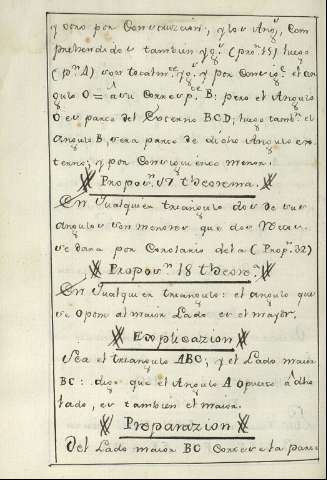 y otro por Construccion; y los Angˢ. Com
prehendidos tambien ygˢ. (propⁿ.15) luego
(pⁿ.4) son totalmᵗᵉ ygˢ. y por Consigᵗᵉ. el an
gulo O = a su Corresp.ᵗᵉ B: pero el Angulo
O es parte del Externo BCD; luego tambⁿ. el
Angulo B, sera parte de dicho Angulo ex
terno; y por Consiguiente menor.
Proposⁿ. 17 theorema.
En Qualquier triangulo dos de sus
angulos son menores que dos Rectos.
se dara por Corolario de la (Propⁿ. 32)
Proposⁿ 18 theoreᵃ
En Qualquier triangulo: el angulo que
se opone al maior Lado es el mayor.
Explicazion
Sea el triangulo ABC; y el Lado maior
BC: digo que el Angulo A opuesto â dho
lado, es tambien el maior.
Preparazion
Del Lado maior BC Cortese la parte